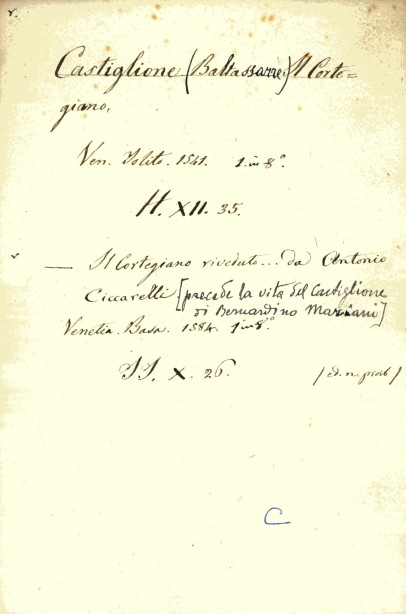 v.
Castiglione (Baltassarre) Il Corte=
giano.
Ven. Jolito. 1541. 1. in 8º.
H. XII. 35.
v
— Il Cortegiano riveduto... da Antonio
Ciccarelli [precede la vita del Castiglione
di Bernardino Marliani]
Venetia. Basa. 1584. 1 in 8º.
JJ. X. 26. / ed. n. proib /
C